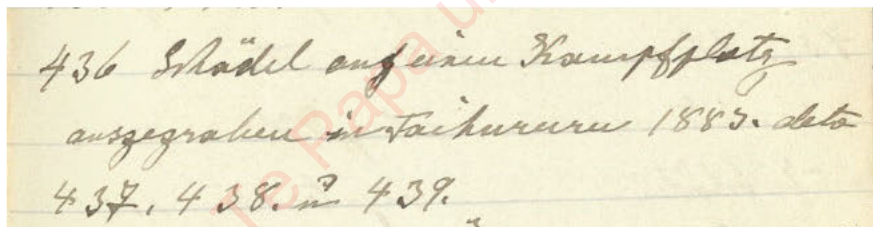 436 Schädel auf einen Kampfplatz
ausgegraben in Taihururu 1883. deto
437. 438. u 439.